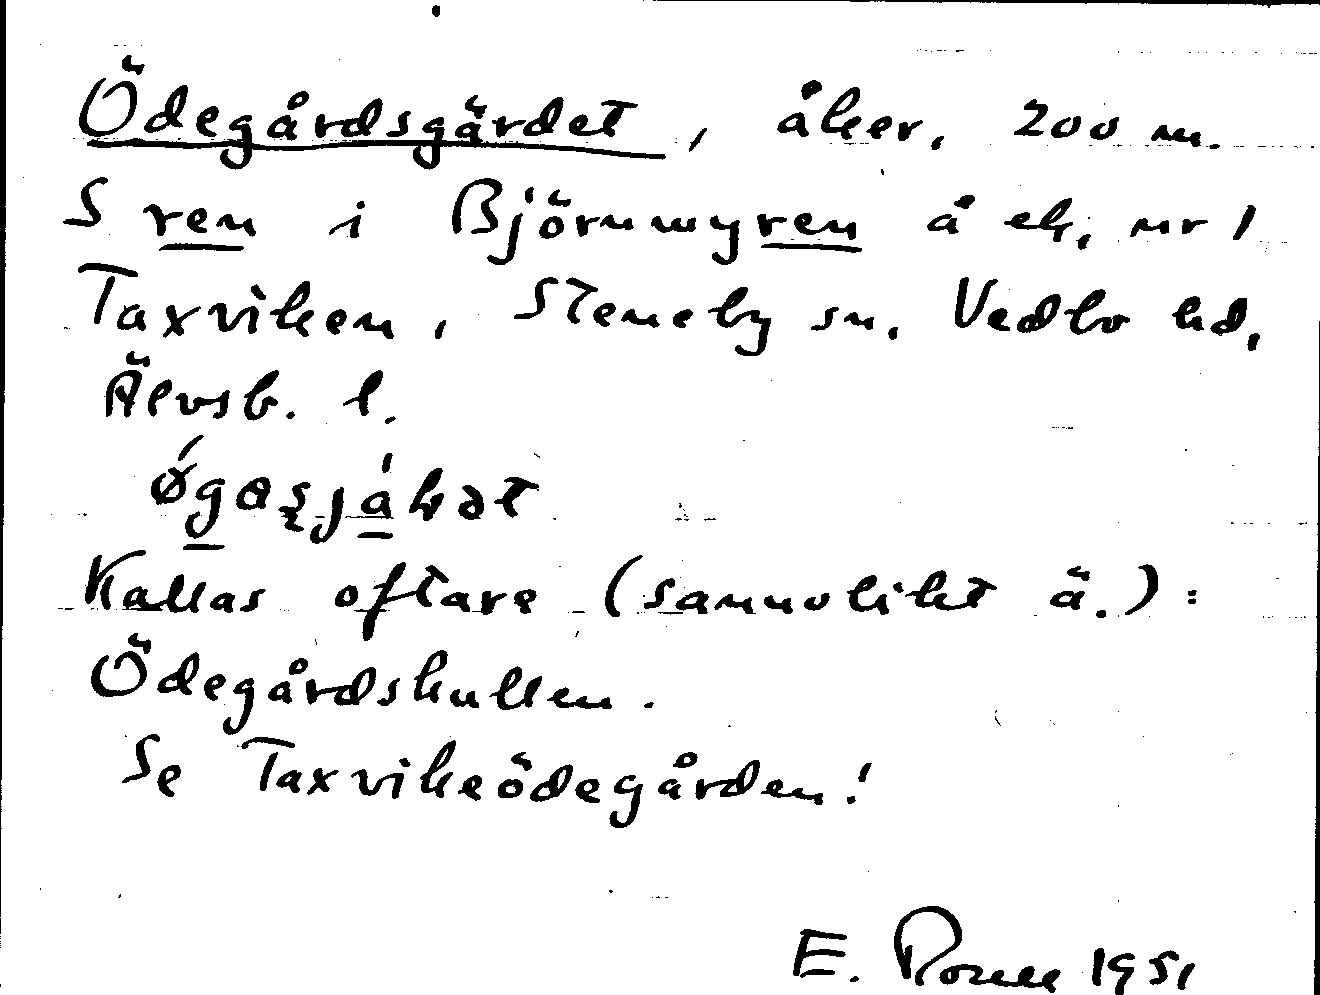 Ödegårdsgärdet, åker, 200 m.
S ren i Björnmyren å ek. nr 1
Taxviken, Steneby sn. Vedbo hd,
Älvsb. l.
Kallas oftare (sannolikt ä.):
Ödegårdskullen.
Se Taxvikeödegården!
E. 1951